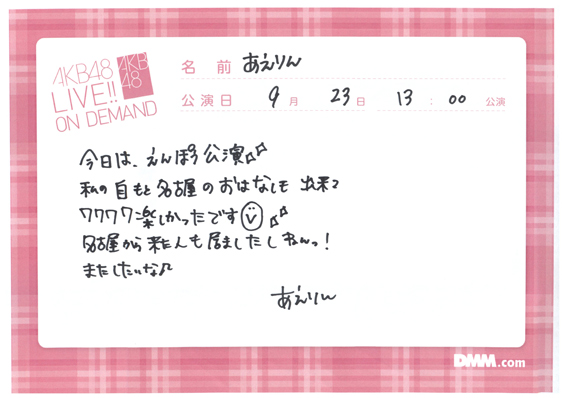 AKB48
LIVE!!
ON DEMAND
AKB
48
名前 あえりん
公演日 9月 23日 13:00 公演
今日は、えんぽう公演♪♪
私の自もと名古屋のおはなしも 出来て
ワクワク楽しかったです ♪♪
名古屋から来た人も居ましたしねんっ!
またしたいな♪
あえりん
DMM.com